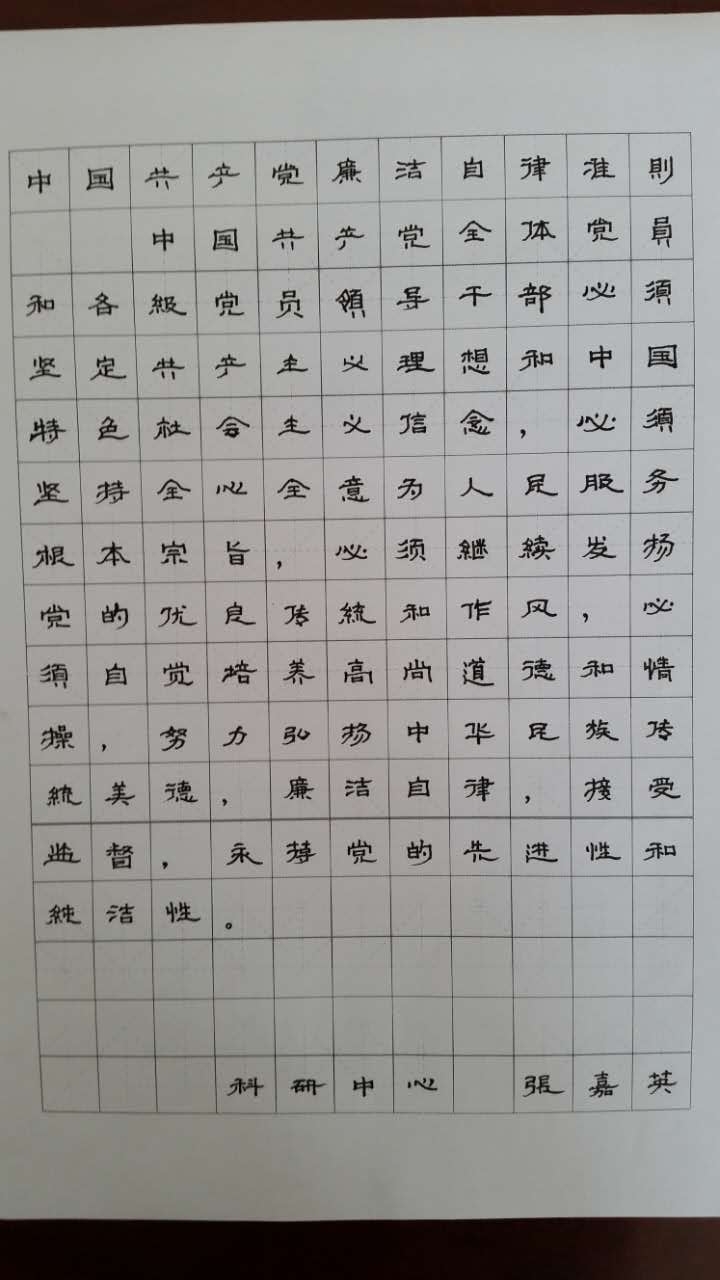 中国共产党廉洁自律准則
中国共产党全体党員
和各級党员領导干部必須
坚定共产主义理想和中国
特色社会主义信念，必須
坚持全心全意为人民服务
根本宗旨，必须継續发扬
党的优良传統和作风，必
須自觉培养高尚道德和情
操，努力弘扬中华民族传
統美德，廉洁自律，接受
监督，永持党的先进性和
純洁性。
科研中心 張嘉英